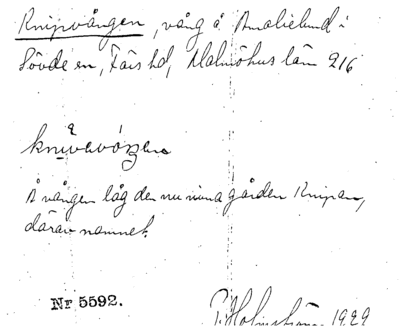 Knipvången, vång å Amalielund i
Sövde sn, Färs hd, Malmöhus län 216
Å vången låg den nu rivna gården Knipan,
därav namnet.
Nr 5592.
P. Holmström 1929